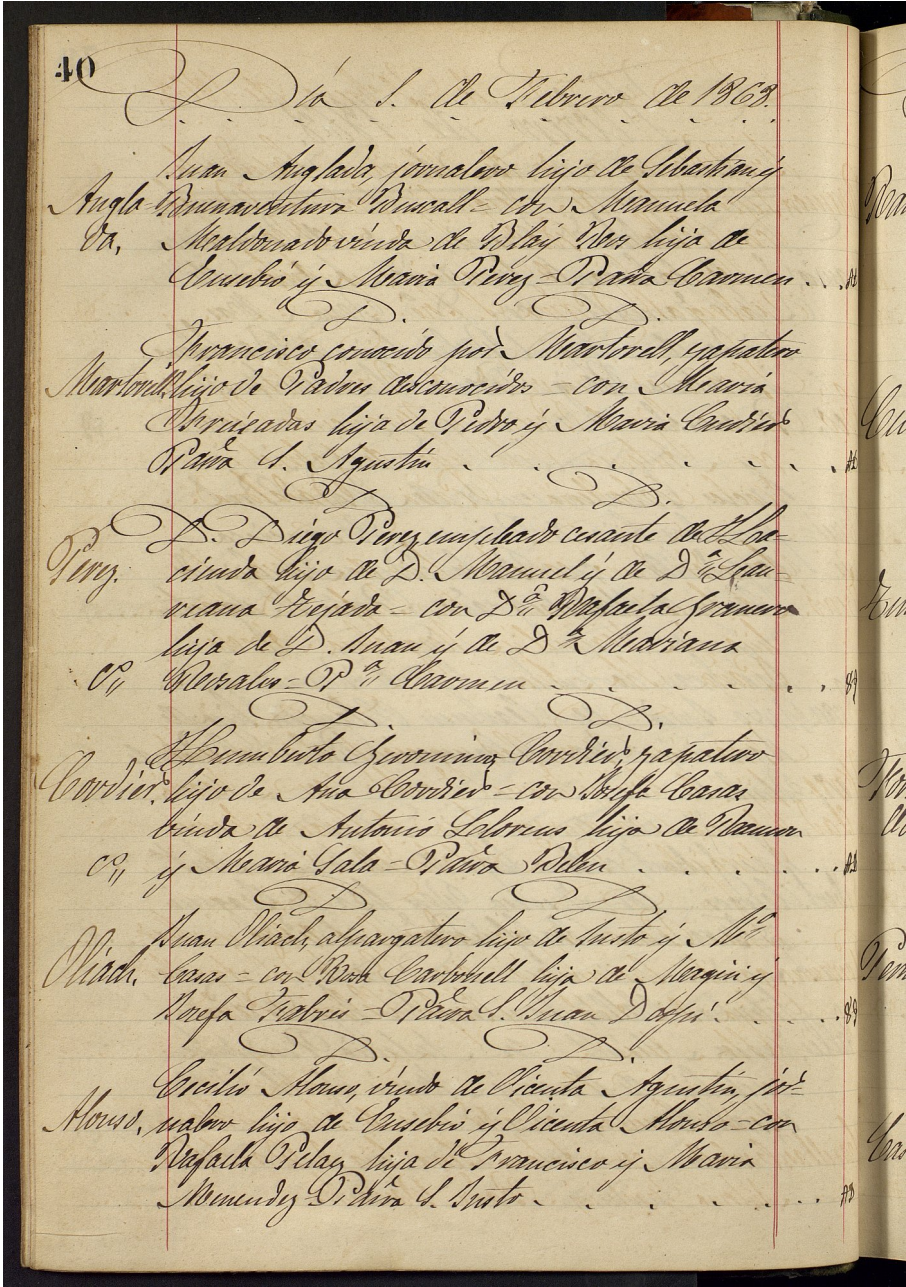 40
Día 1. de Febrero de 1868.
Juan Anglada, jornalero hijo de Sebastian y
Angla- Buenaventura Buscall = con Manuela
da, Maldonado viuda de Blay Ros hija de
Eusebio y Maria Perez = Parra Carmen
D. D.
Francisco conocido por Martorell, zapatero
Martorell, hijo de Padres desconocidos = con Maria
hija de Pedro y Maria
Parra S. Agustin
D. D.
D. Diego Perez empleado cesante de Ha-
Perez. cienda hijo de D. Manuel y de Dª Lau-
reana Tejada = con Dª Rafaela Granero
hija de D. Juan y de Dª Mariana
Cº Rosales = Pª Carmen
D. D.
Humberto Geronimo Cordier, zapatero
Cordier, hijo de Ana Cordier = con Josefa Casas
viuda de Antonio Llorens hija de Ramon
Cº y Maria Sala = Parra Belen
D. D.
Juan Oliach, alpargatero hijo de Justo y Mª
Oliach, Casas = con Rosa Carbonell hija de Magin y
Josefa Fabres = Parra S. Juan D
D. D.
Cecilio Alonso, viudo de Vicenta Agustin, jor-
Alonso, nalero hijo de Eusebio y Vicenta Alonso = con
Rafaela Pelaez hija de Francisco y Maria
Menendez = Parra S. Justo